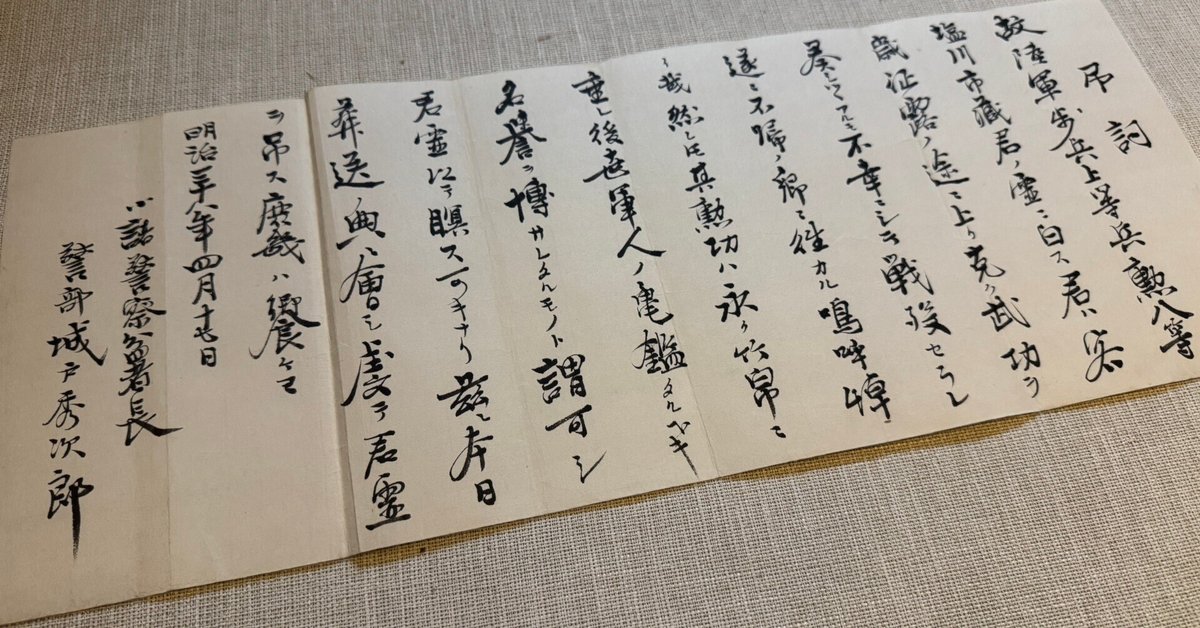 吊詞
故陸軍歩兵上等兵勲八等
塩川市蔵君ノ霊ニ白ス君ハ客
歳征露ノ途ニ上リ克ク武功ヲ
奏シツヽアルモ不幸ニシテ戦歿セラレ
遂ニ不帰ノ郷ニ往カル嗚呼悼
哉然レ𪜈其勲功ハ永ク竹帛ニ
垂レ後世軍人ノ亀鑑タルベキ
名誉ヲ博サレタルモノト謂可シ
君霊以テ瞑ス可キナリ茲ニ本日
葬送ノ典ニ會シ虔テ君霊
ヲ吊ス庶幾ハ饗ケヨ
明治三十八年四月十七日
小諸警察分署長
警部城戸秀次郎